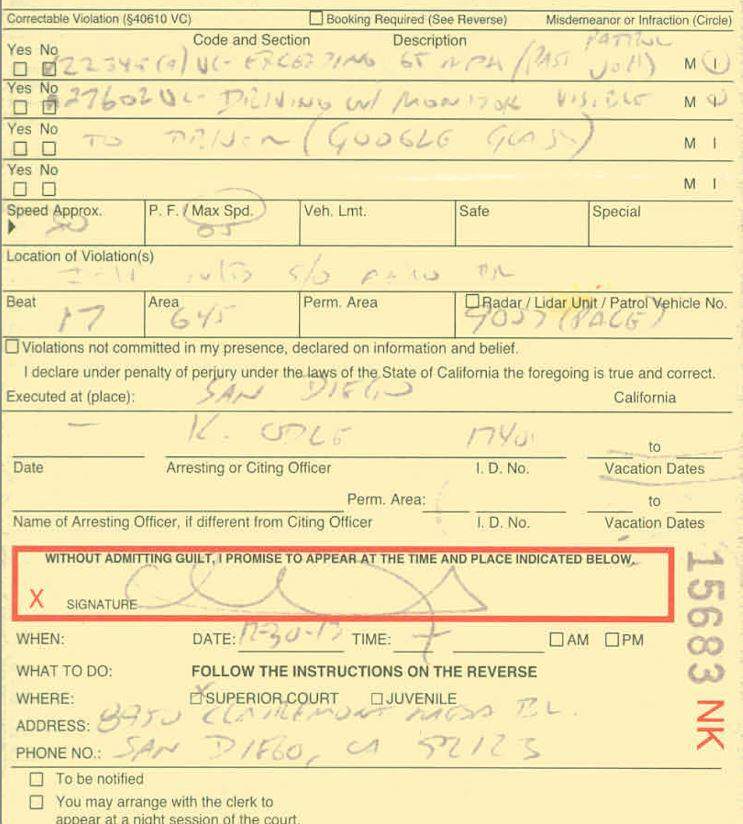 Correctable Violation (§40610 VC) Booking Required (See Reverse) Misdemeanor or Infraction (Circle)
Yes No Code and Section Description PATROL
VC- 65 MPH / (PAST JOH) M I
Yes No
27602 VC- DRIVING W/ MONITOR VISIBLE M I
Yes No
TO DRIVER (GOOGLE GLASS) M I
Yes No
M I
Speed Approx. P. F. / Max Spd. Veh. Lmt. Safe Special
65
Location of Violation(s)
S/O DR
Beat Area Perm. Area Radar / Lidar Unit / Patrol Vehicle No.
17 645 (PACE)
Violations not committed in my presence, declared on information and belief.
I declare under penalty of perjury under the laws of the State of California the foregoing is true and correct.
Executed at (place): SAN DIEGO California
K. ODLE to
Date Arresting or Citing Officer I. D. No. Vacation Dates
Perm. Area: to
Name of Arresting Officer, if different from Citing Officer I. D. No. Vacation Dates
WITHOUT ADMITTING GUILT, I PROMISE TO APPEAR AT THE TIME AND PLACE INDICATED BELOW.
X SIGNATURE
WHEN: DATE: TIME: AM PM
WHAT TO DO: FOLLOW THE INSTRUCTIONS ON THE REVERSE
WHERE: X SUPERIOR COURT JUVENILE
ADDRESS: 8950 CLAIREMONT MESA BL.
PHONE NO.: SAN DIEGO, CA 92123
To be notified
You may arrange with the clerk to
appear at a night session of the court.
15683 NK